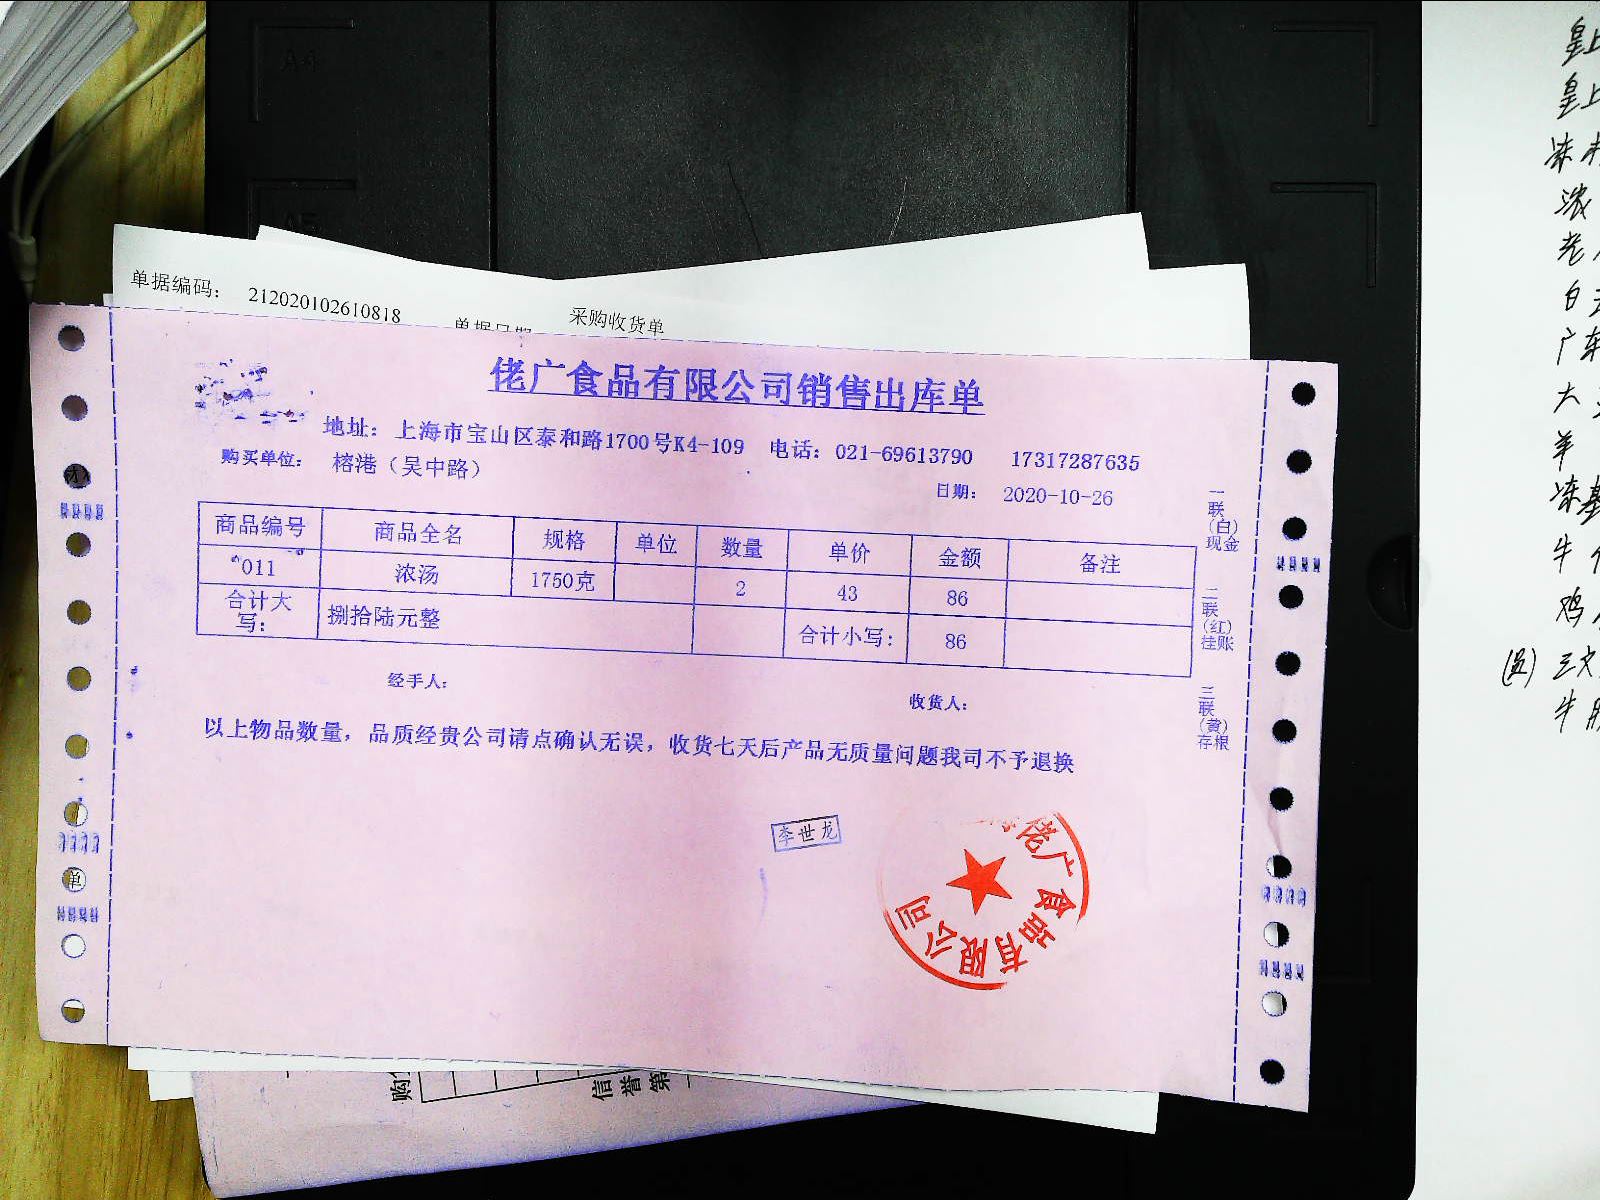 单据编码： 212020102610818
采购收货单
佬广食品有限公司销售出库单
地址：上海市宝山区泰和路1700号K4-109 电话：021-69613790 17317287635
购买单位： 榕港（吴中路）
日期： 2020-10-26
商品编号 商品全名 规格 单位 数量 单价 金额 备注
011 浓汤 1750克 2 43 86
合计大写： 捌拾陆元整 合计小写： 86
一联（白）现金
二联（红）挂账
三联（黄）存根
经手人：
收货人：
以上物品数量，品质经贵公司请点确认无误，收货七天后产品无质量问题我司不予退换
李世龙
佬广食
有限公司
信誉第
皇上
皇上
冻
浓
老
白
广东
大
羊
冻
牛
鸡
三文
牛